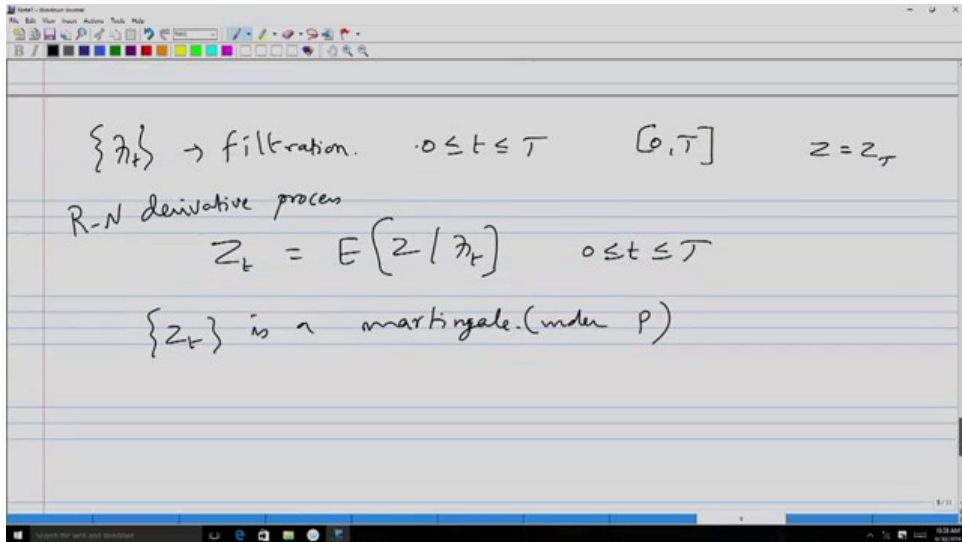 Note1 - Windows Journal
File Edit View Insert Actions Tools Help
B I
{ℱₜ} → filtration. 0 ≤ t ≤ T [0, T] Z = Z_T
R-N derivative process
Zₜ = E[Z / ℱₜ] 0 ≤ t ≤ T
{Zₜ} is a martingale. (under P)
Search the web and Windows
10:28 AM